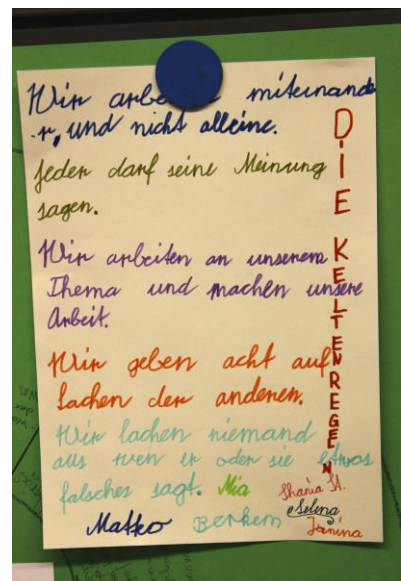 Wir arbe miteinande
r, und nicht alleine.
Jeder darf seine Meinung
sagen.
Wir arbeiten an unserem
Thema und machen unsere
Arbeit.
Wir geben acht auf
Sachen der anderen.
Wir lachen niemand
aus wen er oder sie etwas
falsches sagt. Mia
Matko Berkem
Shania St.
Selena
Janina
DIE KELTENREGELN